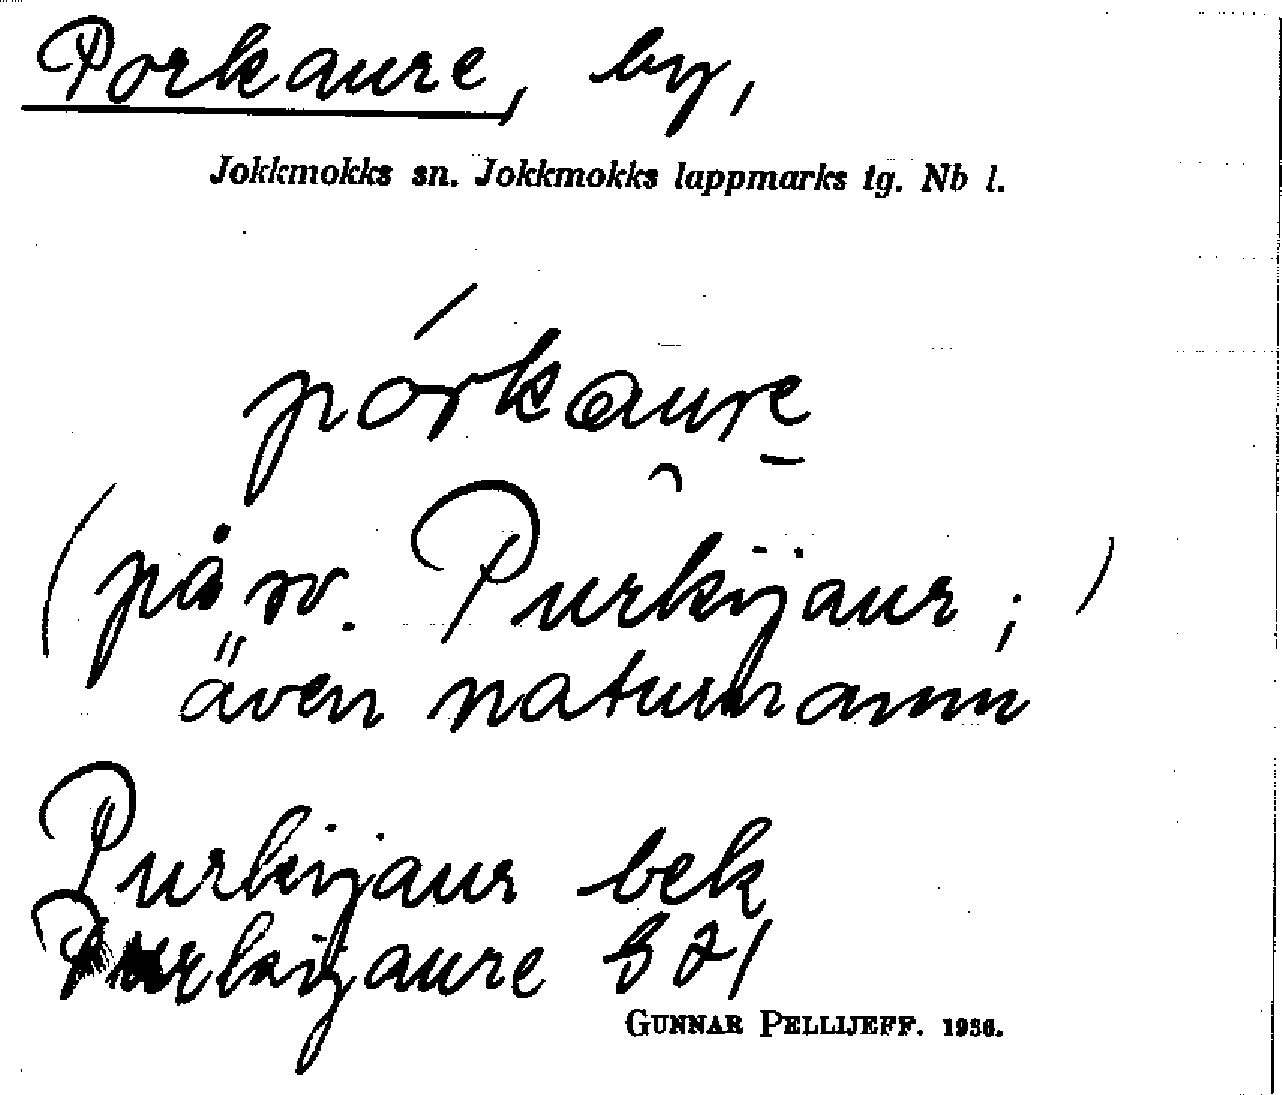 Porkaure, by,
Jokkmokks sn. Jokkmokks lappmarks tg. Nb l.
pórkaure
(på sv. Purkijaur;)
även naturnamn
Purkijaur bek
Purkijaure 321
GUNNAR PELLIJEFF. 1936.